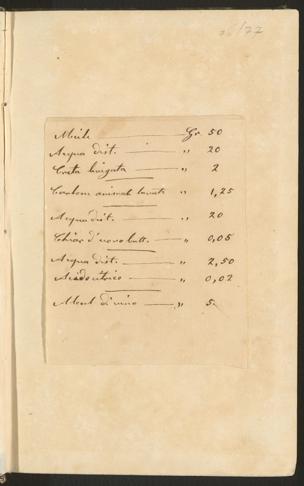 26/77
Miele Gr 50
Acqua dist. " 20
Creta levigata " 2
Carbon animal lavato " 1,25
Acqua dist. " 20
Chiar d'uovo batt. " 0,05
Acqua dist. " 2,50
Acido citrico " 0,02
Alcool di vino " 5